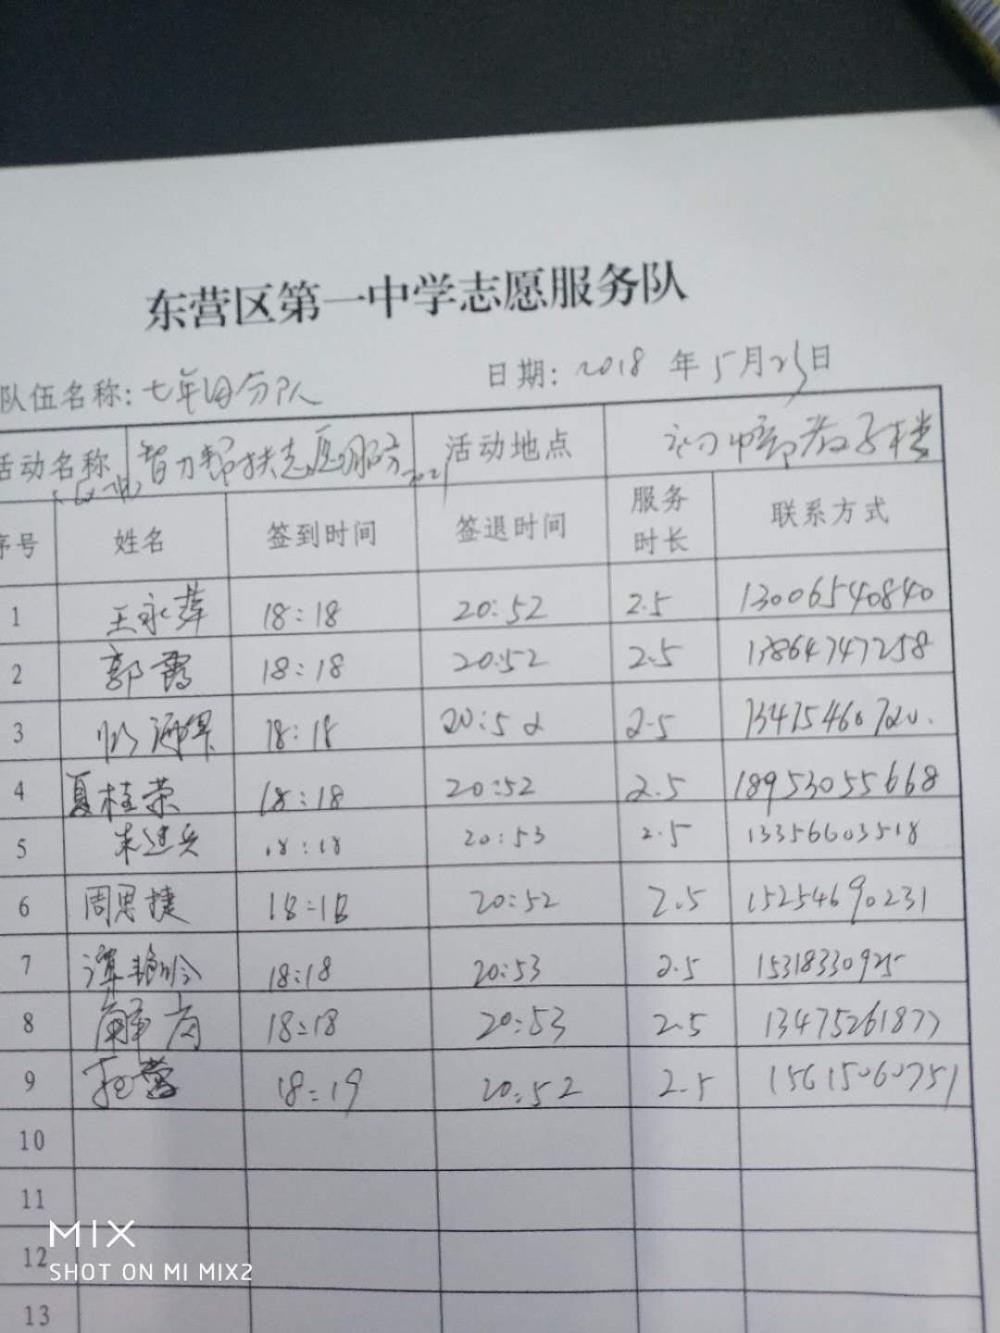 东营区第一中学志愿服务队
队伍名称: 七年级分队 日期: 2018 年 5月25日
活动名称 智力帮扶志愿服务 活动地点 初中部教学楼
序号 姓名 签到时间 签退时间 服务时长 联系方式
1 王永萍 18:18 20:52 2.5 13006540840
2 郭霞 18:18 20:52 2.5 13864747258
3 18:18 20:52 2.5 13475460720.
4 夏桂荣 18:18 20:52 2.5 18953055668
5 朱建兵 18:18 20:53 2.5 13356603518
6 周思捷 18:18 20:52 2.5 15254690231
7 谭艳玲 18:18 20:53 2.5 15318330925
8 解 18:18 20:53 2.5 13475261877
9 18:19 20:52 2.5 15615060751
10
11
12
13
MIX
SHOT ON MI MIX2